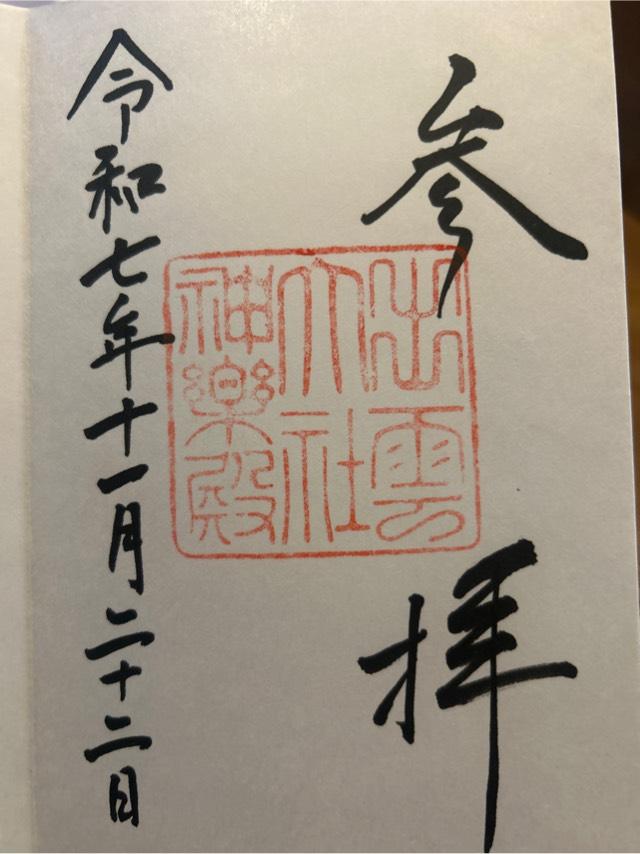 参拝
出雲
大社
神樂殿
令和七年十一月二十二日